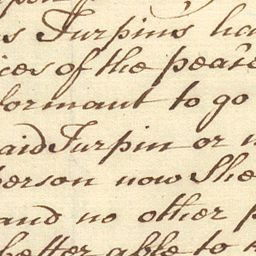 s Turpins ha
ices of the peace
formant to go
aid Turpin or
person now She
and no other p
better able to